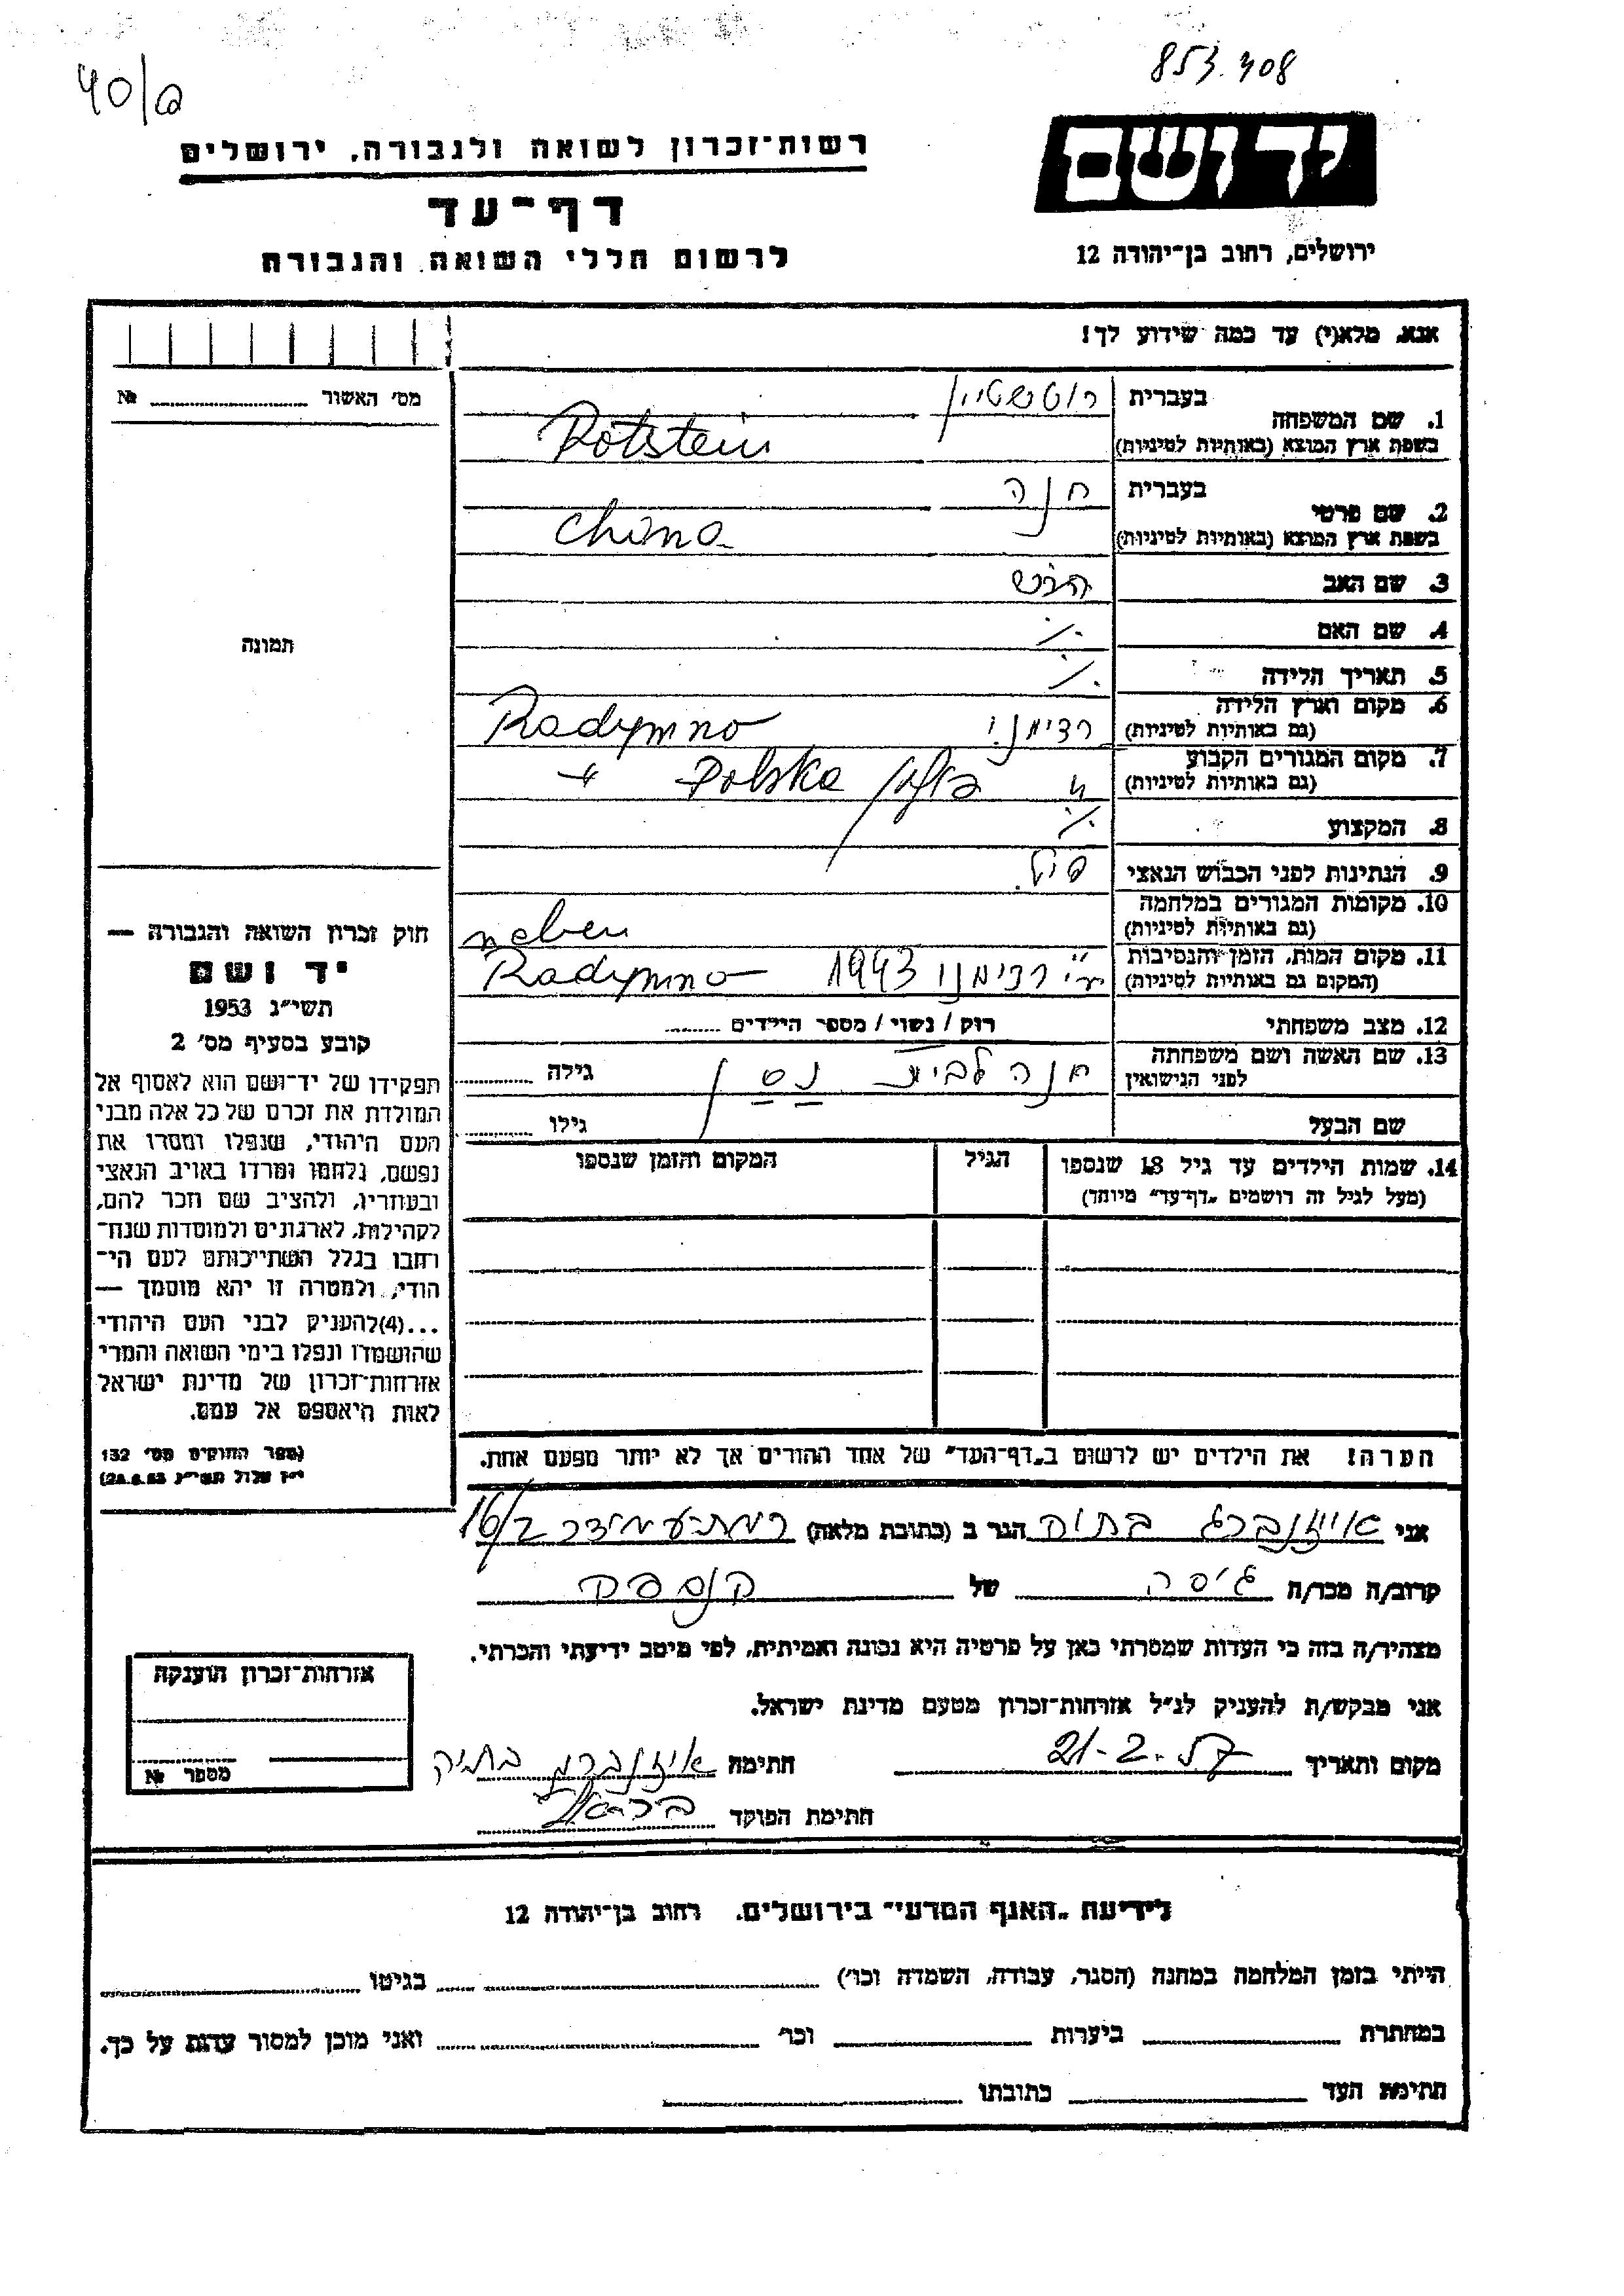 853.408
40/a
יד ושם
רשות־זכרון לשואה ולגבורה, ירושלים
דף־עד
ירושלים, רחוב בן־יהודה 12
לרשום חללי השואה והגבורה
אנא, מלא(י) עד כמה שידוע לך!
מס' האשור № 
1. שם המשפחה
בעברית רוטשטיין
בשפת ארץ המוצא (באותיות לטיניות) Rotstein
2. שם פרטי
בעברית חנה
בשפת ארץ המוצא (באותיות לטיניות) Chana
3. שם האב הירש
4. שם האם ./.
5. תאריך הלידה ./.
6. מקום וארץ הלידה
(גם באותיות לטיניות) רדימנו Radymno
7. מקום המגורים הקבוע
(גם באותיות לטיניות) " פולין Polska "
8. המקצוע ./.
9. הנתינות לפני הכבוש הנאצי פול.
10. מקומות המגורים במלחמה
(גם באותיות לטיניות)
neben
11. מקום המות, הזמן והנסיבות
(המקום גם באותיות לטיניות) ע"י רדימנו 1943 Radymno
12. מצב משפחתי רוק / נשוי / מספר הילדים
13. שם האשה ושם משפחתה
לפני הנישואין חנה לבית נסן גילה
שם הבעל גילו
14. שמות הילדים עד גיל 18 שנספו
(מעל לגיל זה רושמים „דף־עד" מיוחד)
הגיל
המקום והזמן שנספו
הערה! את הילדים יש לרשום ב„דף־העד" של אחד ההורים אך לא יותר מפעם אחת.
תמונה
חוק זכרון השואה והגבורה —
יד ושם
תשי"ג 1953
קובע בסעיף מס' 2
תפקידו של יד־ושם הוא לאסוף אל
המולדת את זכרם של כל אלה מבני
העם היהודי, שנפלו ומסרו את
נפשם, נלחמו ומרדו באויב הנאצי
ובעוזריו, ולהציב שם וזכר להם,
לקהילות, לארגונים ולמוסדות שנח־
רחבו בגלל השתייכותם לעם הי־
הודי, ולמטרה זו יהא מוסמך —
...(4)להעניק לבני העם היהודי
שהושמדו ונפלו בימי השואה והמרי
אזרחות־זכרון של מדינת ישראל
לאות היאספם אל עמם.
(ספר החוקים מס' 132
י"ז אלול תשי"ג 28.8.53)
אני אייזנברג בתיה הגר ב (כתובת מלאה) רמת־עמידר 16/2
קרוב/ה מכר/ה גיסה של הנספה
מצהיר/ה בזה כי העדות שמסרתי כאן על פרטיה היא נכונה ואמיתית, לפי מיטב ידיעתי והכרתי.
אני מבקש/ת להעניק לנ"ל אזרחות־זכרון מטעם מדינת ישראל.
מקום ותאריך 21-2.57 חתימה אייזנברג בתיה
חתימת הפוקד
אזרחות־זכרון הוענקה
מספר №
לידיעת „האגף המדעי" בירושלים, רחוב בן־יהודה 12
הייתי בזמן המלחמה במחנה (הסגר, עבודה, השמדה וכו') בגיטו
במחתרת ביערות וכו' ואני מוכן למסור עדות על כך.
חתימת העד כתובתו